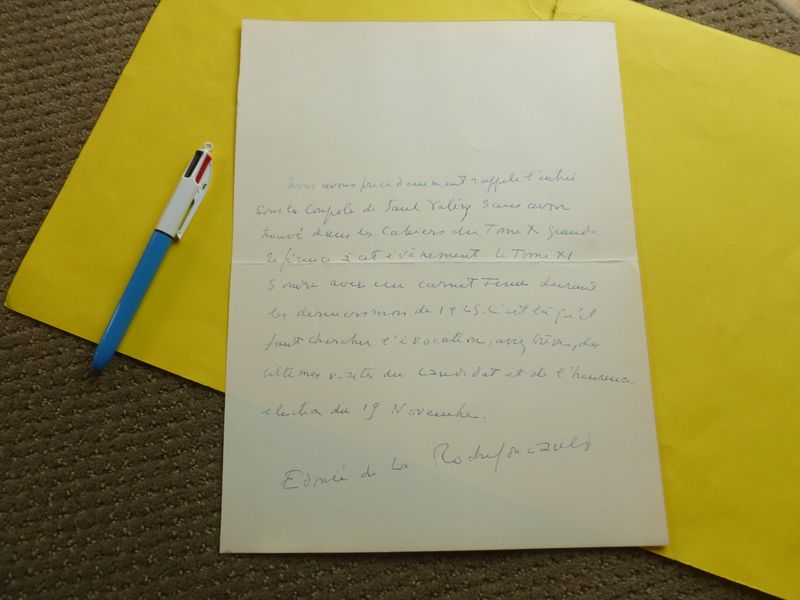 Nous avons précédemment rappelé l'entrée
sous la Coupole de Paul Valéry sans avoir
trouvé dans les Cahiers du Tome X grande
référence à cet évènement. Le Tome XI
s'ouvre avec un carnet tenu durant
les derniers mois de 1925. C'est là qu'il
faut chercher l'évocation, assez brève, des
ultimes visites du candidat et de l'heureuse
élection du 19 Novembre.
Edmée de La Rochefoucauld